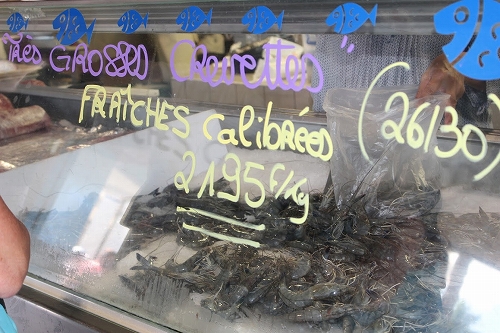 "TRÈS GROSSES CREVETTES"
FRAÎCHES CALIBRÉES
(26/30)
2195 F/Kg